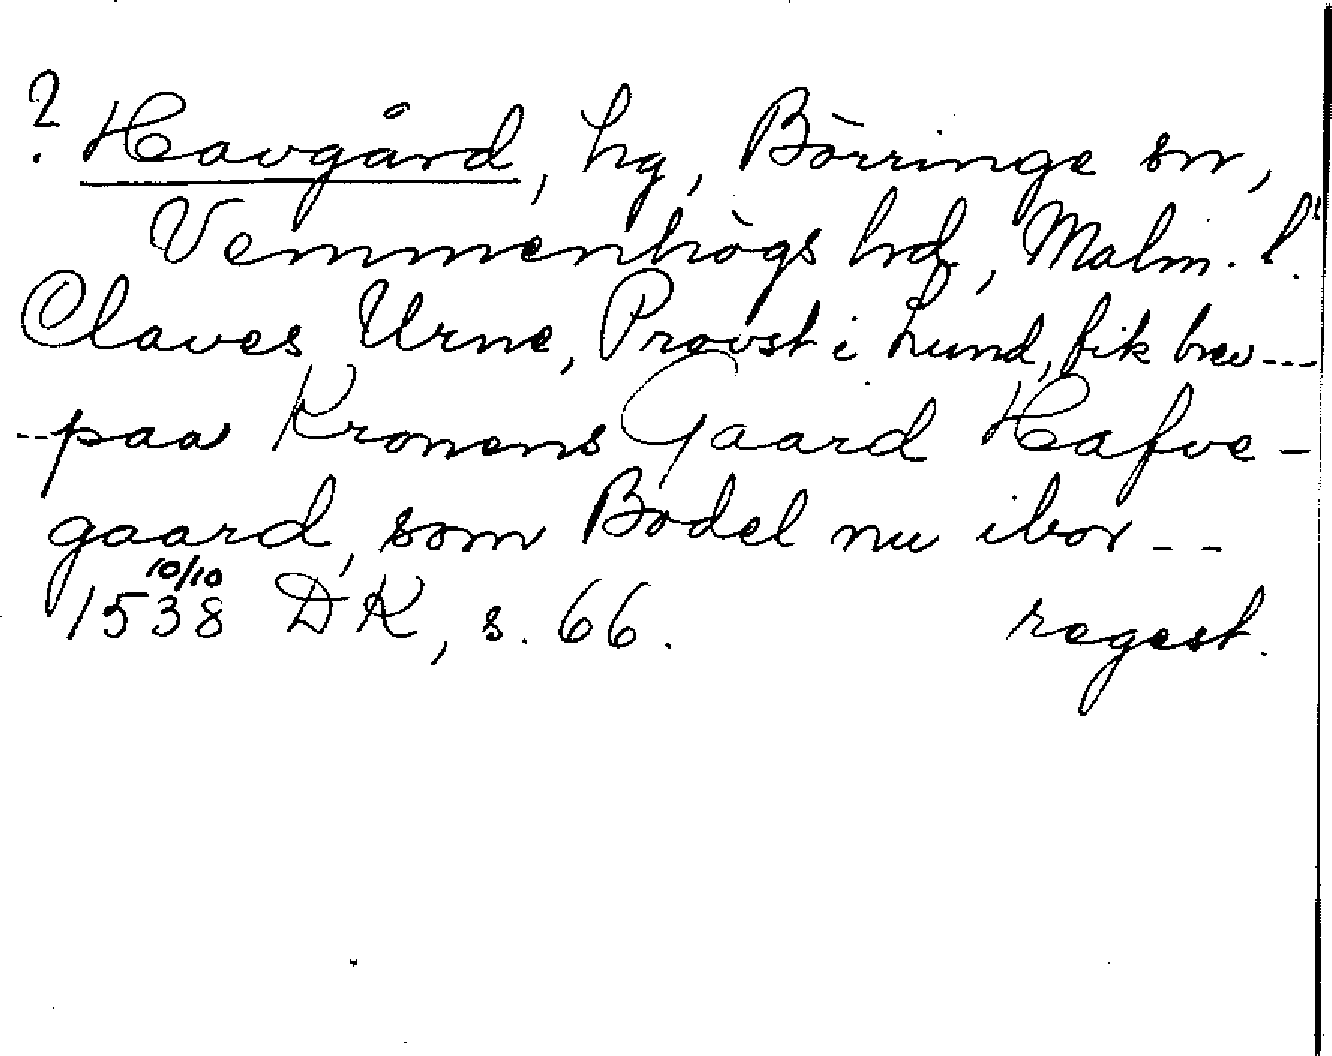 ? Havgård, hg, Börringe sn,
Vemmenhögs hd, Malm. l.
Claves Urne, Provst i Lund, fik brev ---
-- paa Kronens Gaard Hafve-
gaard, som Bodel nu ibor --
10/10
1538 DK, s. 66. regest.